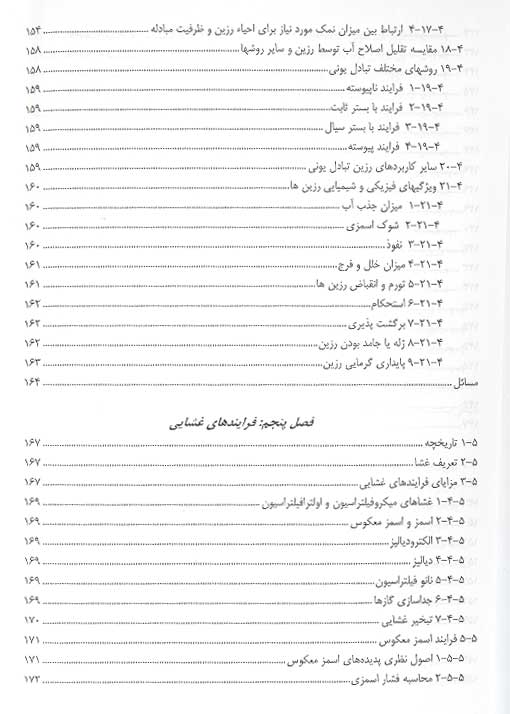 ۴-۱۷-۴ ارتباط بین میزان نمک مورد نیاز برای احیاء رزین و ظرفیت مبادله ۱۵۴
۴-۱۸ مقایسه تقلیل اصلاح آب توسط رزین و سایر روشها ۱۵۸
۴-۱۹ روشهای مختلف تبادل یونی ۱۵۸
۴-۱۹-۱ فرایند ناپیوسته ۱۵۹
۴-۱۹-۲ فرایند با بستر ثابت ۱۵۹
۴-۱۹-۳ فرایند با بستر سیال ۱۵۹
۴-۱۹-۴ فرایند پیوسته ۱۵۹
۴-۲۰ سایر کاربردهای رزین تبادل یونی ۱۵۹
۴-۲۱ ویژگیهای فیزیکی و شیمیایی رزین ها ۱۶۰
۴-۲۱-۱ میزان جذب آب ۱۶۰
۴-۲۱-۲ شوک اسمزی ۱۶۰
۴-۲۱-۳ نفوذ ۱۶۰
۴-۲۱-۴ میزان خلل و فرج ۱۶۱
۴-۲۱-۵ تورم و انقباض رزین ها ۱۶۱
۴-۲۱-۶ استحکام ۱۶۲
۴-۲۱-۷ برگشت پذیری ۱۶۲
۴-۲۱-۸ ژله یا جامد بودن رزین ۱۶۲
۴-۲۱-۹ پایداری گرمایی رزین ۱۶۳
مسائل ۱۶۴
فصل پنجم: فرایندهای غشایی
۵-۱ تاریخچه ۱۶۷
۵-۲ تعریف غشا ۱۶۷
۵-۳ مزایای فرایندهای غشایی ۱۶۷
۵-۴-۱ غشاهای میکروفیلتراسیون و اولترافیلتراسیون ۱۶۹
۵-۴-۲ اسمز و اسمز معکوس ۱۶۹
۵-۴-۳ الکترودیالیز ۱۶۹
۵-۴-۴ دیالیز ۱۶۹
۵-۴-۵ نانو فیلتراسیون ۱۶۹
۵-۴-۶ جداسازی گازها ۱۶۹
۵-۴-۷ تبخیر غشایی ۱۷۰
۵-۵ فرایند اسمز معکوس ۱۷۱
۵-۵-۱ اصول نظری پدیده‌های اسمز معکوس ۱۷۱
۵-۵-۲ محاسبه فشار اسمزی ۱۷۲